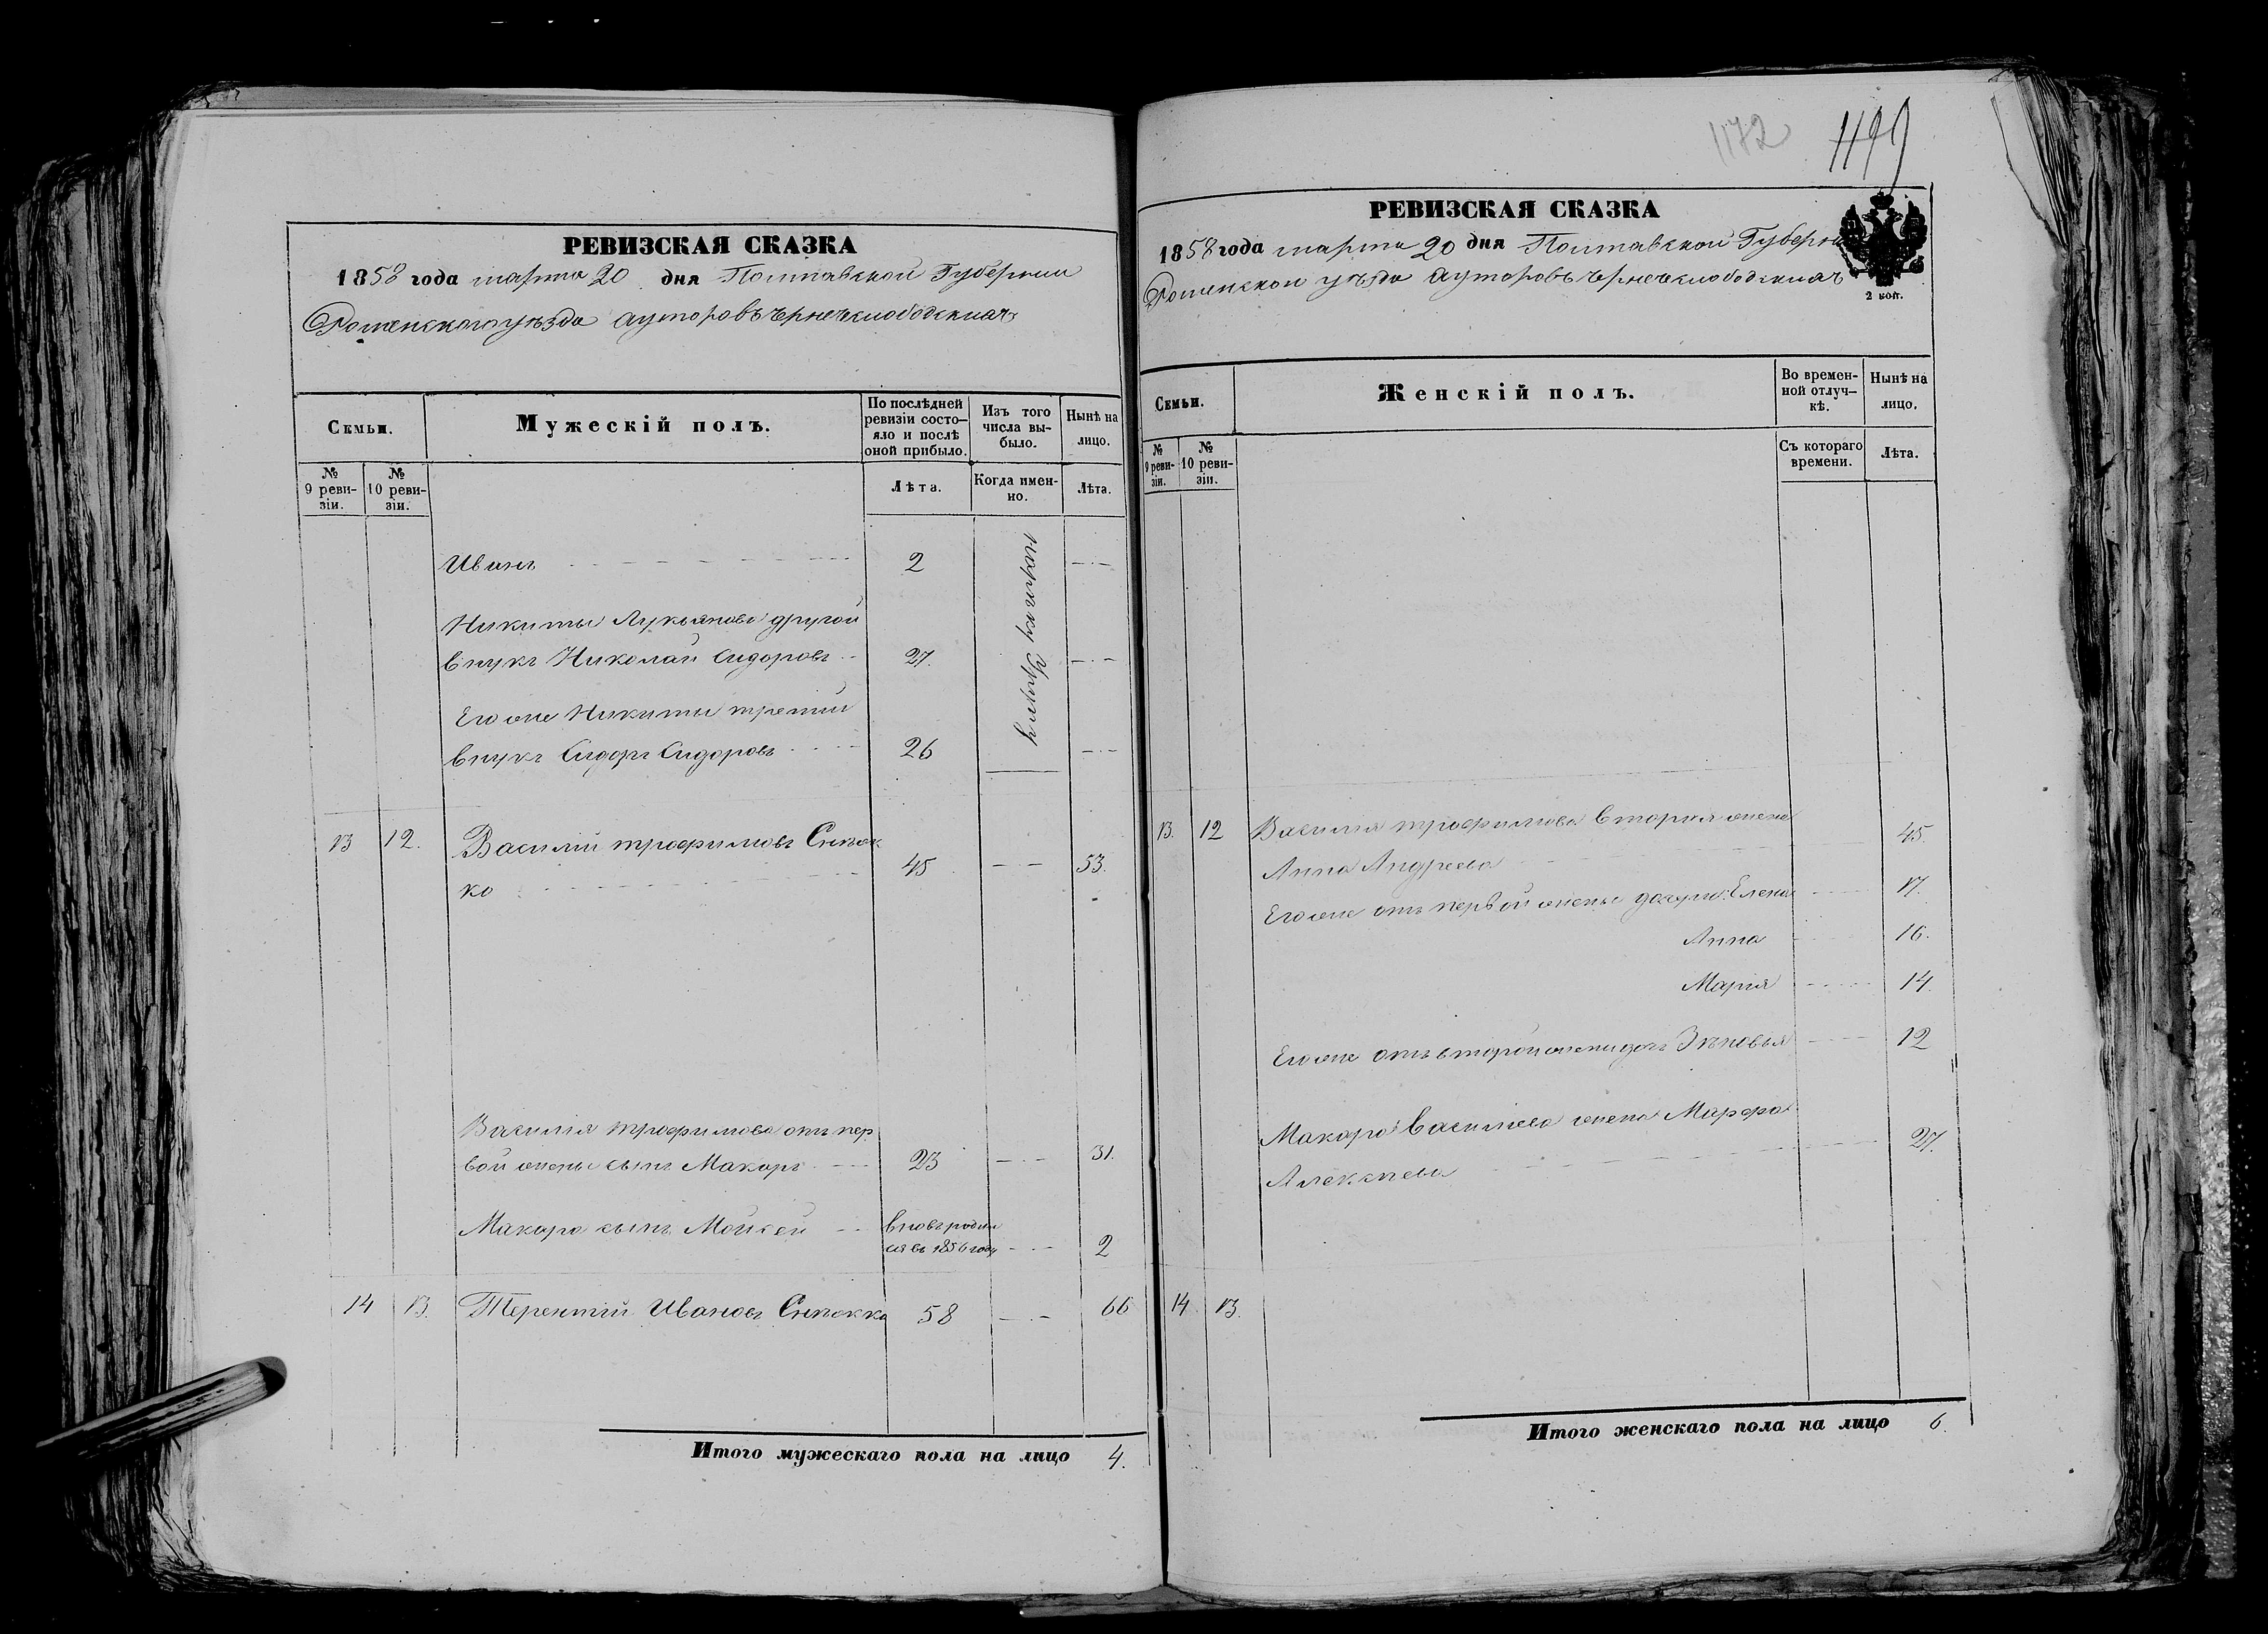 1172
РЕВИЗСКАЯ СКАЗКА
1858 года марта 20 дня Полтавской Губернии
Роменского уѣзда хуторовъ
Семьи.
Мужескій полъ.
По послѣдней ревизіи состо-
яло и послѣ
оной прибыло.
Изъ того
числа вы-
было.
Нынѣ на
лицо.
№
9 реви-
зіи.
№
10 реви-
зіи.
Лѣта.
Когда имен-
но.
Лѣта.
Иванъ 2
Никиты Лукьянова другой
внукъ Николай Сидоровъ 27.
Его же Никиты третій
внукъ Сидоръ Сидоровъ 26
13 12. Василій Трофимовъ
ко 45 53.
Василія Трофимова отъ пер
вой жены сынъ Макаръ 23 31.
Макара сынъ Мойсей вновь родил
ся въ 1856 году 2
14 13. Терентій Ивановъ 58 66
Итого мужескаго пола на лицо 4.
РЕВИЗСКАЯ СКАЗКА
1858 года марта 20 дня Полтавской Губерніи
Роменскои уѣзда хуторовъ
2 коп.
Семьи.
Женскій полъ.
Во времен-
ной отлуч-
кѣ.
Нынѣ на
лицо.
№
9 реви-
зіи.
№
10 реви-
зіи.
Съ котораго
времени.
Лѣта.
13. 12 Василія Трофимова вторая жена
Анна Андреева 45.
Его же отъ первой жены дочери: Елена 17.
Анна 16.
Марія 14.
Его же отъ второй жены дочь Зѣновья 12
Макара Васильева жена Марфа
Алексѣева 27.
14. 13.
Итого женскаго пола на лицо 6.